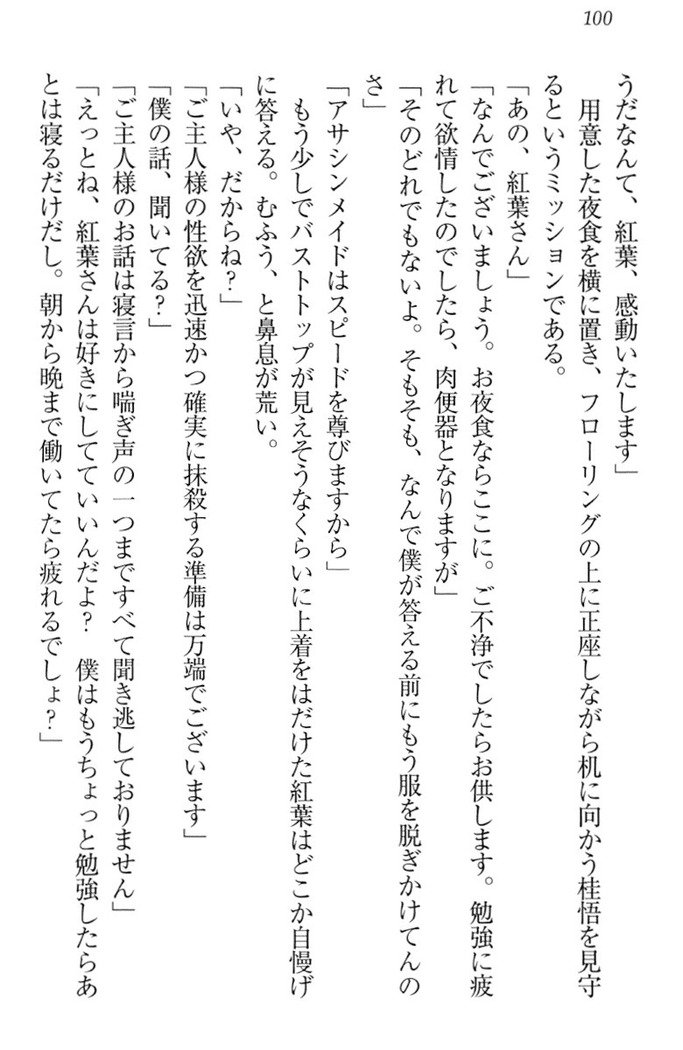 100
うだなんて、紅葉、感動いたします」
　用意した夜食を横に置き、フローリングの上に正座しながら机に向かう桂悟を見守
るというミッションである。
「あの、紅葉さん」
「なんでございましょう。お夜食ならここに。ご不浄でしたらお供します。勉強に疲
れて欲情したのでしたら、肉便器となりますが」
「そのどれでもないよ。そもそも、なんで僕が答える前にもう服を脱ぎかけてんの
さ」
「アサシンメイドはスピードを尊びますから」
　もう少しでバストトップが見えそうなくらいに上着をはだけた紅葉はどこか自慢げ
に答える。むふう、と鼻息が荒い。
「いや、だからね？」
「ご主人様の性欲を迅速かつ確実に抹殺する準備は万端でございます」
「僕の話、聞いてる？」
「ご主人様のお話は寝言から喘ぎ声の一つまですべて聞き逃しておりません」
「えっとね、紅葉さんは好きにしてていいんだよ？　僕はもうちょっと勉強したらあ
とは寝るだけだし。朝から晩まで働いてたら疲れるでしょ？」